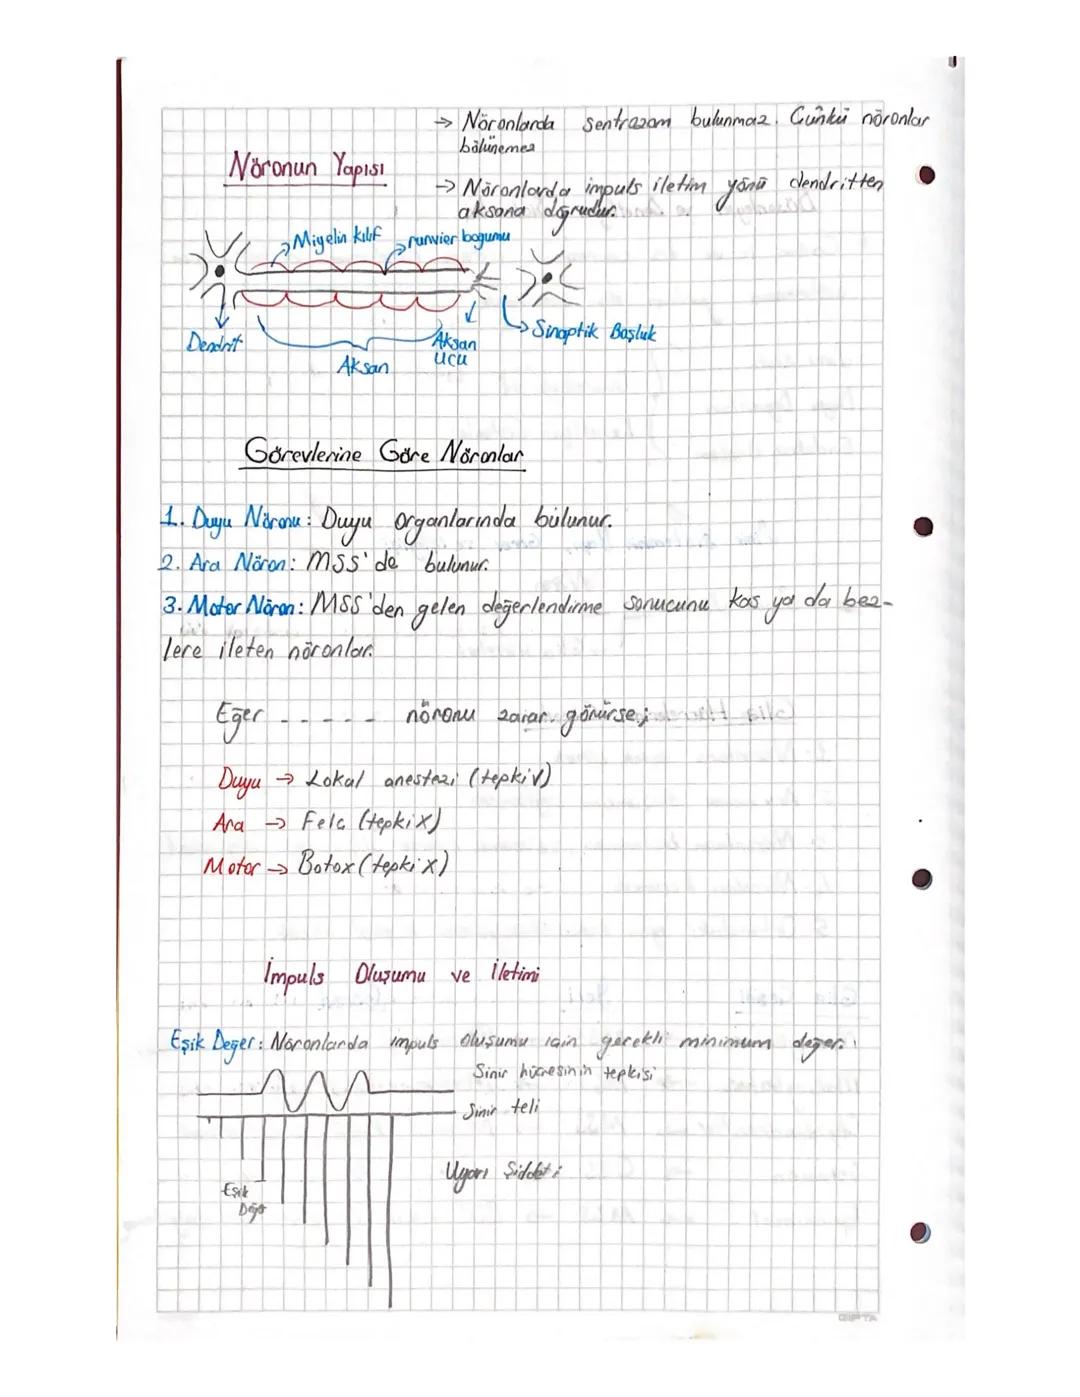 → Nöronlarda sentrozom bulunmaz. Çünkü nöronlar
bölünemez
Nöronun Yapısı
→ Nöronlarda impuls iletim yönü dendritten
aksona doğrudur.
Miyelin kılıf
runvier bogumu
Dendrit
Akson
Akson
ucu
Sinaptik Boşluk
Görevlerine Göre Nöronlar
1. Duyu Nöronu: Duyu organlarında bulunur.
2. Ara Nöron: MSS'de bulunur.
3. Motor Nöron: MSS'den gelen değerlendirme sonucunu kas ya da bez-
lere ileten nöronlar.
Eğer - - - - - nöronu zarar görürse;
Duyu → Lokal anestezi (tepki✓)
Ara → Felç (tepkiX)
Motor → Botox (tepkiX)
İmpuls Oluşumu ve İletimi
Eşik Değer: Nöronlarda impuls oluşumu için gerekli minimum değer.
Sinir hücresinin tepkisi
Sinir teli
Uyarı Şiddeti
Eşik
Değer
GIPTA